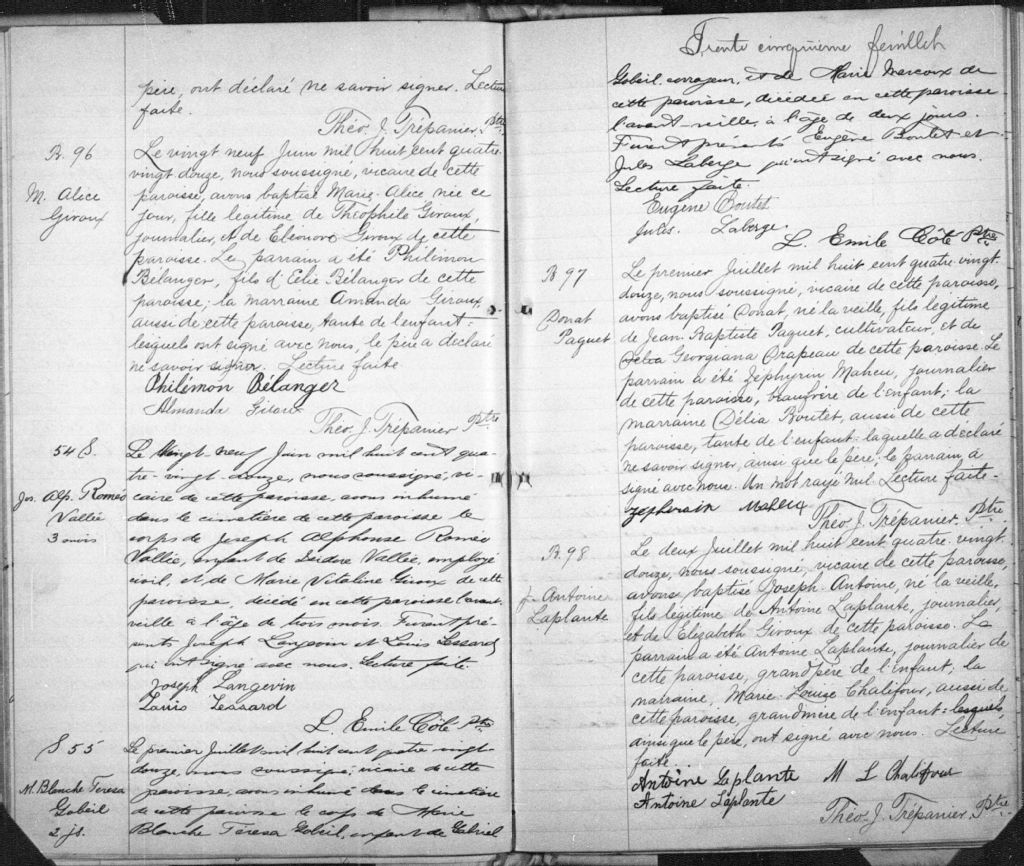 père, ont déclaré ne savoir signer. Lecture
faite.
Théo. J. Trépanier. Ptre
B. 96
M. Alice
Giroux
Le vingt neuf Juin mil huit cent quatre
vingt douze, nous soussigné, vicaire de cette
paroisse, avons baptisé Marie. Alice née ce
jour, fille légitime de Théophile Giroux,
journalier, et de Eléonore Giroux de cette
paroisse. Le parrain a été Philémon
Bélanger, fils d'Elie Bélanger de cette
paroisse; la marraine Amanda Giroux,
aussi de cette paroisse, tante de l'enfant:
lesquels ont signé avec nous, le père a déclaré
ne savoir signer. Lecture faite
Philémon Bélanger
Almanda
Théo. J. Trépanier Ptre
54 S.
Jos. Alp. Roméo
Vallée
3 mois
Le Vingt-neuf Juin mil huit cent qua
tre-vingt-douze, nous soussigné, vi-
caire de cette paroisse, avons inhumé
dans le cimetière de cette paroisse le
corps de Joseph Alphonse Roméo
Vallée, enfant de Isidore Vallée, employé
civil, et de Marie Vitaline Giroux de cette
paroisse, décédé en cette paroisse l'avant-
veille à l'âge de trois mois. Furent pré-
sents Joseph Langevin et Louis Lessard
qui ont signé avec nous. Lecture faite
Joseph Langevin
Louis Lessard
L. Emile Côté Ptre
S 55
M. Blanche Teresa
Gobeil
2 js.
Le premier Juillet mil huit cent quatre vingt
douze, nous soussigné, vicaire de cette
paroisse, avons inhumé dans le cimetière
de cette paroisse le corps de Marie
Blanche Teresa Gobeil, enfant de Gabriel
Trente cinquième feuillet
Gobeil, corroyeur, et de Marie Marcoux de
cette paroisse, décédée en cette paroisse
l'avant-veille, à l'âge de deux jours.
Furent présents Eugène Boutet et
Jules Laberge qui ont signé avec nous.
Lecture faite.
Eugène Boutet
Jules. Laberge.
L. Emile Côté Ptre
B 97
Donat
Paquet
Le premier Juillet mil huit cent quatre. vingt.
douze, nous soussigné, vicaire de cette paroisse,
avons baptisé Donat, né la veille, fils légitime
de Jean. Baptiste Paquet, cultivateur, et de
Délia Georgiana Drapeau de cette paroisse. Le
parrain a été Zéphyrin Maheu, journalier
de cette paroisse, beaufrère de l'enfant; la
marraine Délia Boutet, aussi de cette
paroisse, tante de l'enfant: laquelle a déclaré
ne savoir signer, ainsi que le père; le parrain a
signé avec nous. Un mot rayé nul. Lecture faite.
Théo. J. Trépanier. Ptre
B. 98
J. Antoine
Laplante
Le deux Juillet mil huit cent quatre. vingt.
douze, nous soussigné, vicaire de cette paroisse,
avons baptisé Joseph. Antoine, né la veille,
fils légitime de Antoine Laplante, journalier,
et de Elizabeth Giroux de cette paroisse. Le
parrain a été Antoine Laplante, journalier de
cette paroisse, grandpère de l'enfant; la
marraine, Marie-Louise Chalifour, aussi de
cette paroisse, grandmère de l'enfant: lesquels
ainsi que le père, ont signé avec nous. Lecture
faite.
Antoine Laplante M L Chalifour
Antoine Laplante
Théo. J. Trépanier. Ptre.